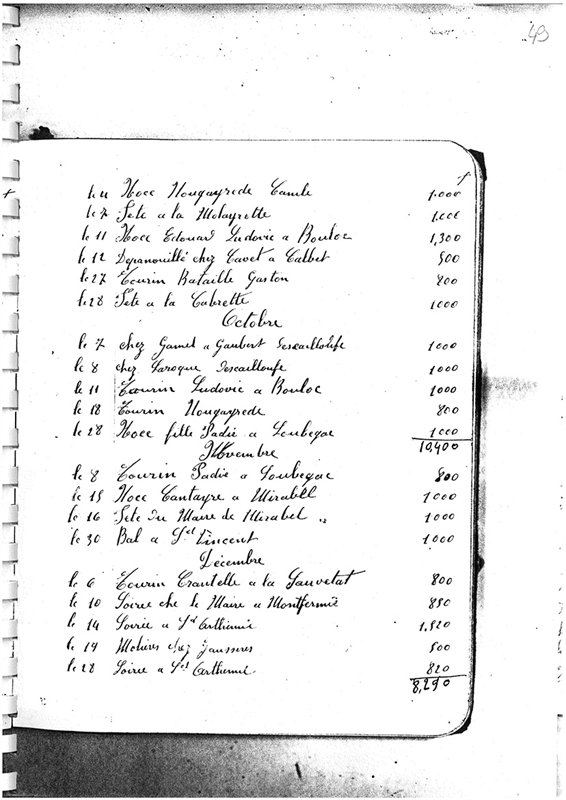 49
f
le 4 Noce Nougayrede Camle 1.000
le 7 Fete a la Molayrette 1.000
le 11 Noce Edouard Ludovic a Bouloc 1,300
le 12 Depanouillé chez Cavet a Calbet 500
le 27 Tourin Bataille Gaston 800
le 28 Fete a la Cabrette 1000
Octobre
le 7 chez Gamel a Gaubert 1000
le 8 chez Laroque 1000
le 11 Tourin Ludovic a Bouloc 1000
le 18 Tourin Nougayrede 800
le 28 Noce fille Padié a Loubegac 1000
10,400
Novembre
le 8 Tourin Padié a Loubegac 800
le 15 Noce Cantayre a Mirabel 1000
le 16 Fete du Maire de Mirabel " 1000
le 30 Bal a St Vincent 1000
Décembre
le 6 Tourin Crantelle a la Sauvetat 800
le 10 Soiree che le Maire a Montfermié 850
le 14 Soirée a St Arthemie 1,520
le 14 Molieres chez Jausseres 500
le 28 Soiree a St Arthemie 820
8,290